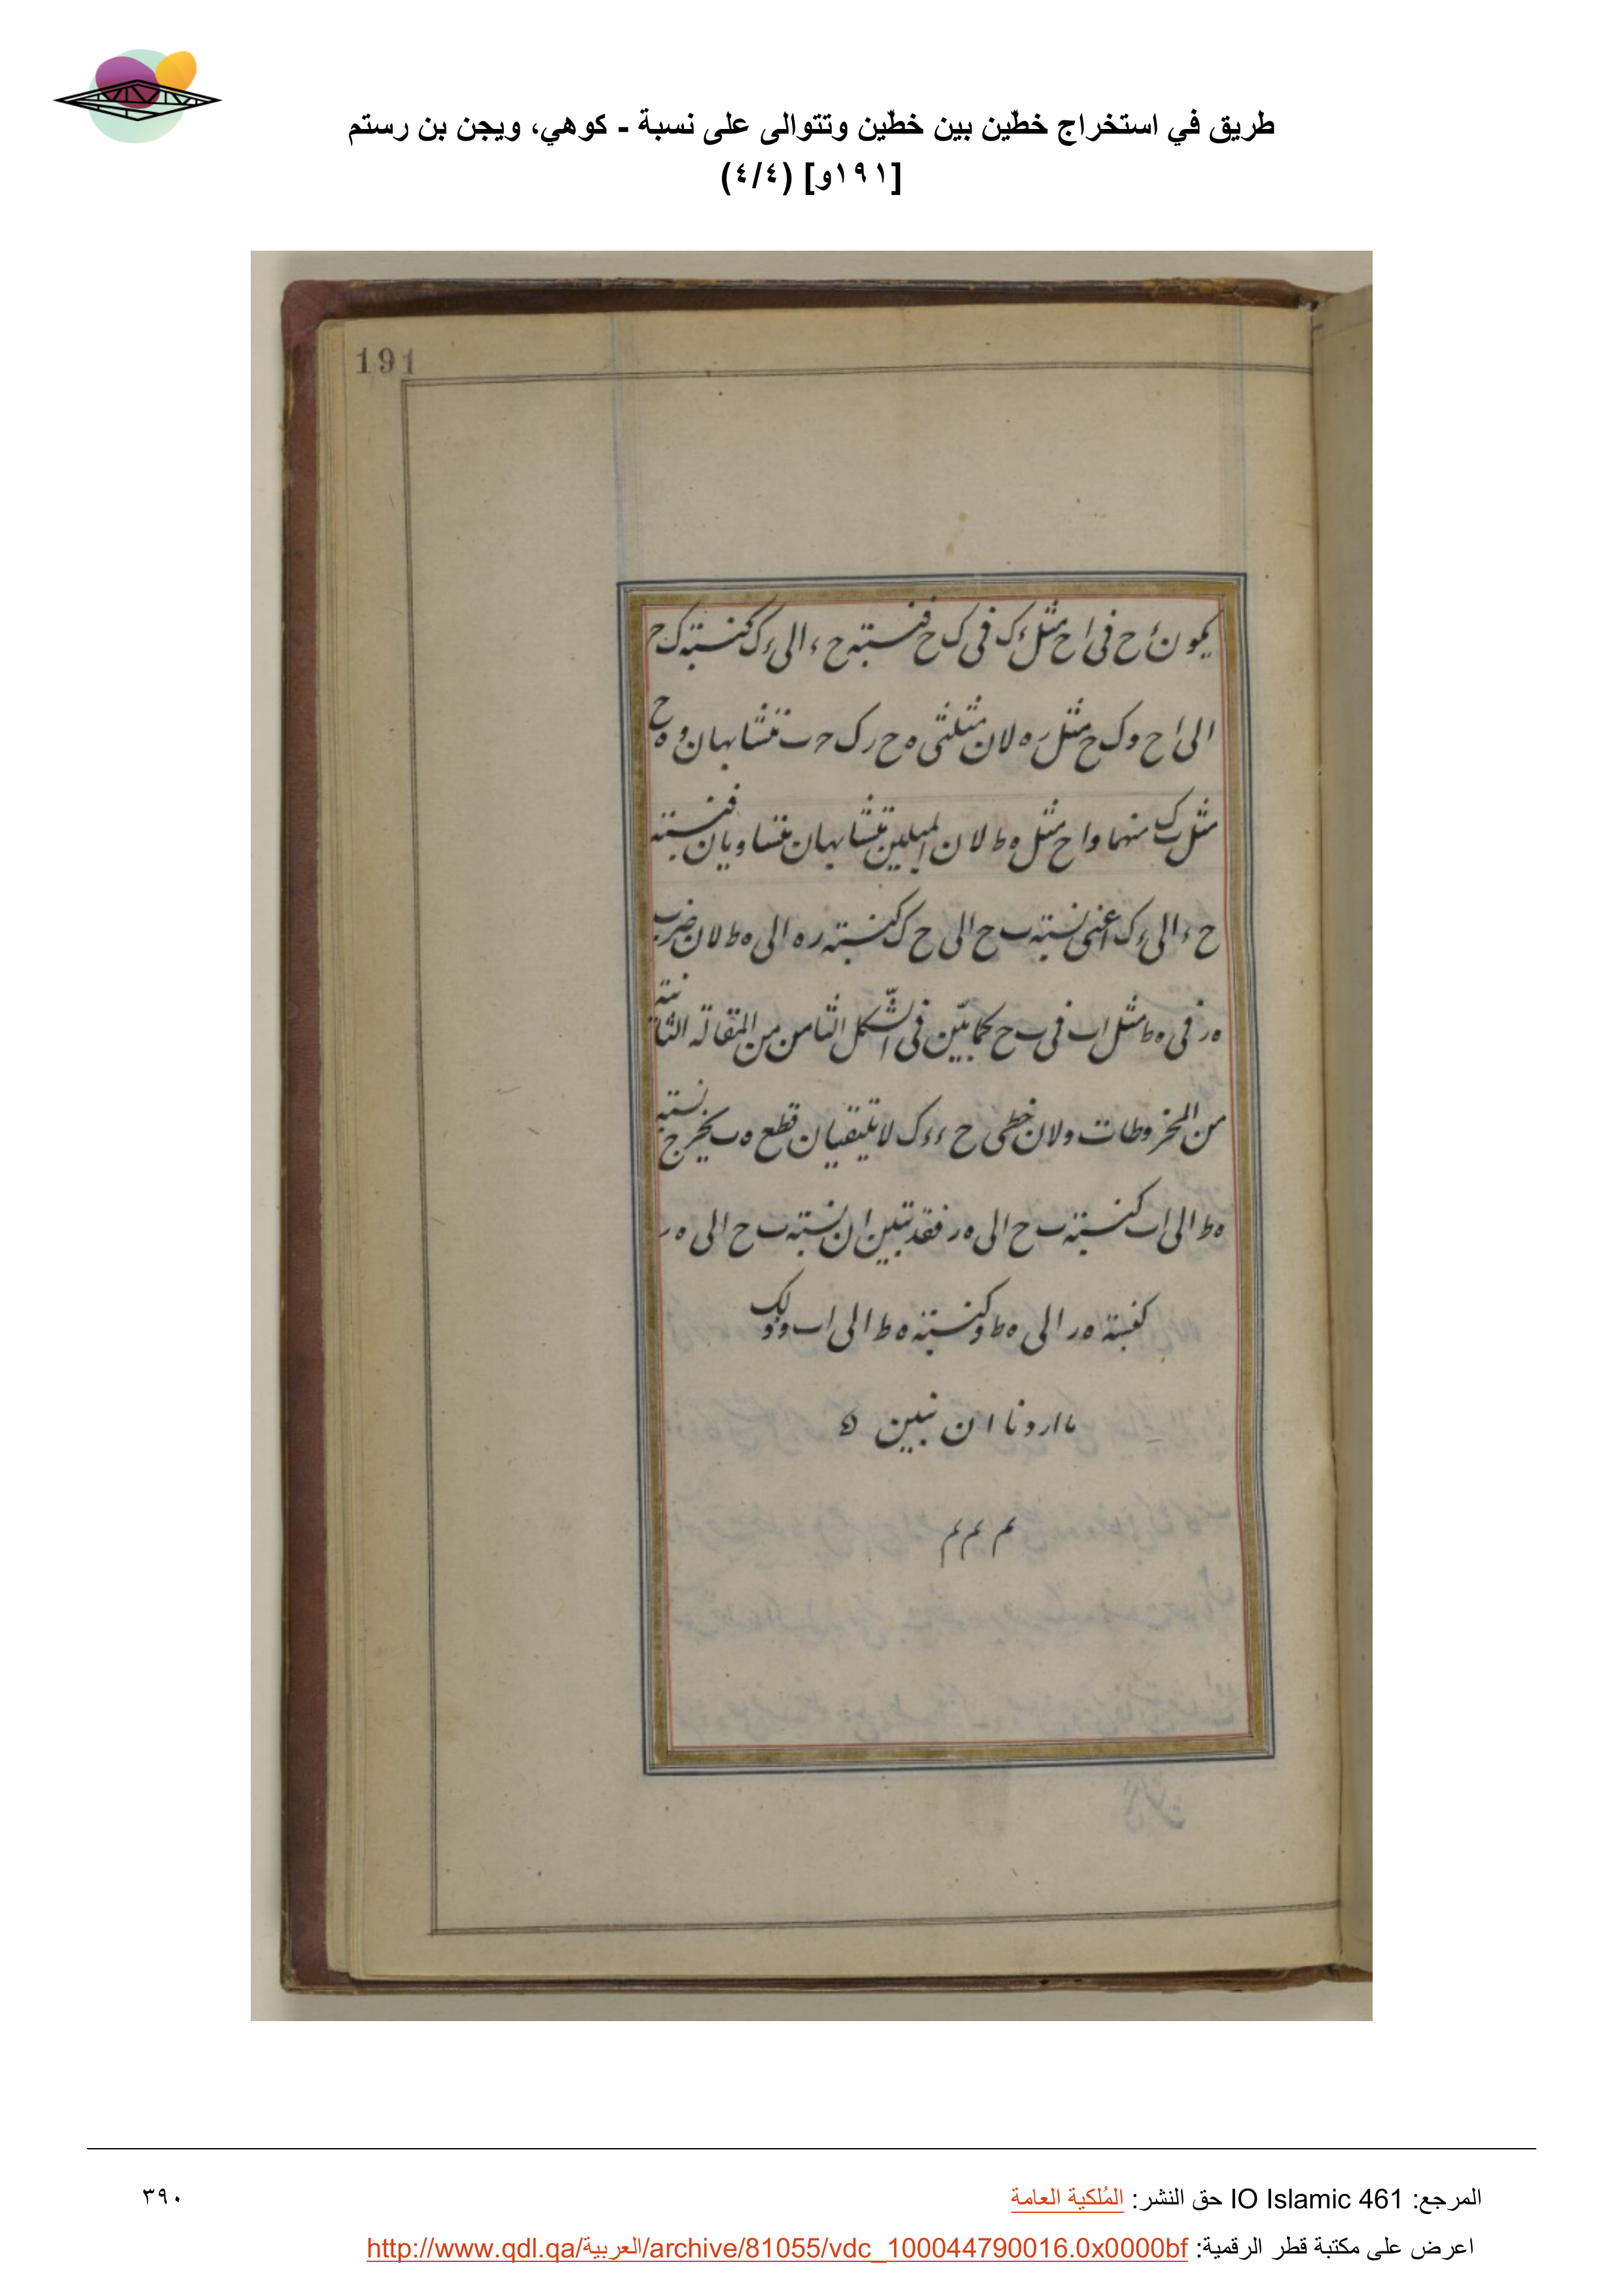 طريق في استخراج خطّين بين خطّين وتتوالى على نسبة - كوهي، ويجن بن رستم
[١٩١و] (٤/٤)
191
يكون ءح فى اح مثل ءك فى ك ح فنسبته ح ء الى ءك كنسبته ك ح
الى اح وك ح مثل ره لان مثلثى ه ح ر ك ح ب متشابهان و ه ح
مثل ك منهما و اح مثل ه ط لان متشابهان متساويان فنسبته
ح ء الى ءك اعنى نسبته ب ح الى ح ك كنسبته ره الى ه ط لان ضرب
ه ر فى ه ط مثل اب فى ب ح كما بيّن فى الشّكل الثامن من المقالة الثانية
من المخروطات ولان خطى ح ء ءك لا يلتقيان قطع ه ب يخرج نسبته
ه ط الى اب كنسبته ب ح الى ه ر فقد تبين ان نسبته ب ح الى ه ر
كنسبته ه ر الى ه ط وكنسبته ه ط الى اب وذلك
ما اردنا ان نبين ه
م م م
المرجع: IO Islamic 461 حق النشر: المُلكية العامة
٣٩٠
اعرض على مكتبة قطر الرقمية: http://www.qdl.qa/العربية/archive/81055/vdc_100044790016.0x0000bf